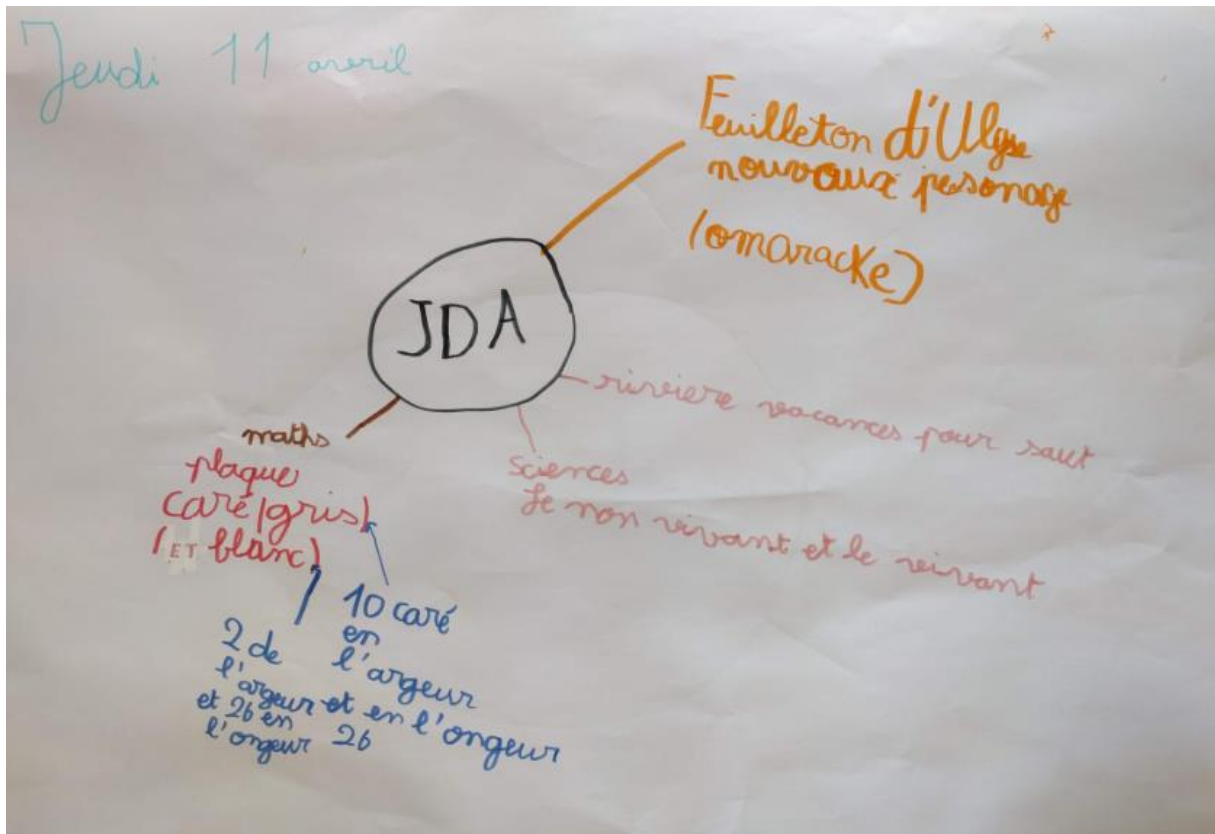 Jeudi 11 avril
Feuilleton d'Ulyse
nouvaux pesonage
(omaracke)
JDA
riviere vacances pour saut
sciences
Le non vivant et le vivant
maths
plaque
caré (gris)
(ET blanc)
10 caré
en
l'argeur
et en l'ongeur
26
2 de
l'argeur
et 26 en
l'ongeur